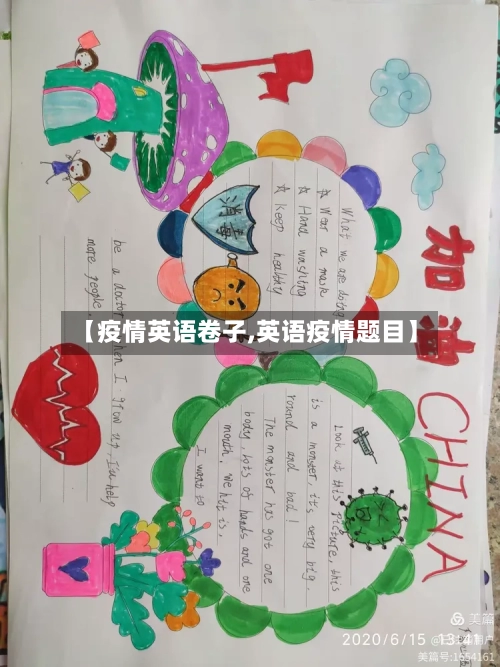 加油 CHINA
What we are doing
☆ Wear a mask
☆ Hand washing
☆ Keep healthy
消毒
【疫情英语卷子,英语疫情题目】
Look at this picture, this
is a monster, it's very big,
round and bad!
The monster has got one
body, lots of hands and one
mouth. We hate it.
I want to
be a doctor when I grow up, I'll help
more people.
美篇
2020/6/15 13:41
美篇号:1554161